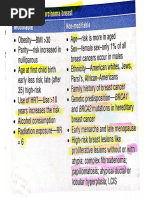 carcinoma breast
Modifiable
Non-modifiable
• Obesity—BMI >30
• Parity—risk increased in
nulliparous
• Age at first child birth
early less risk, late (after
35) high-risk
• Use of HRT—Use >10
years increases the risk
• Alcohol consumption
• Radiation exposure—RR
= 6
• Age—risk is more in aged
• Sex—female sex—only 1% of all
breast cancers occur in males.
• Ethnicity—American whites, Jews,
Parsi's, African-Americans
• Family history of breast cancer
• Genetic predisposition—BRCA1
and BRCA2 mutations in hereditary
breast cancer
• Early menarche and late menopause
• High-risk breast lesions like
proliferative lesions without or with
atypia: complex fibroadenoma,
papillomatosis, atypical ductal or
lobular hyperplasia, LCIS